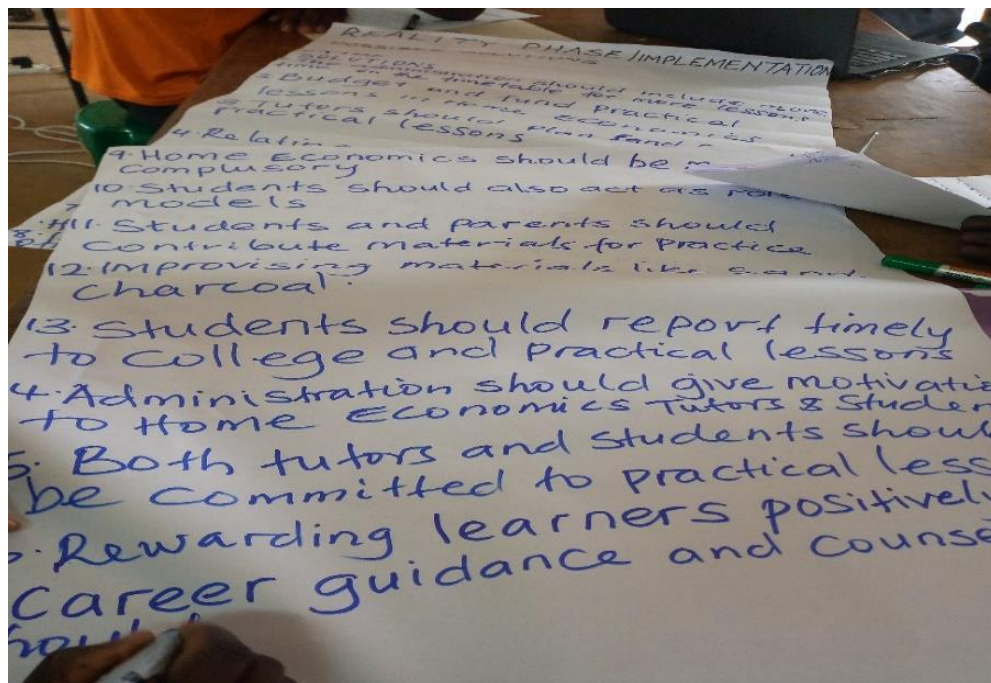 REALITY PHASE/IMPLEMENTATION
SOLUTIONS
should include more
on the timetable for more lessons
2. Budget and fund practical
lessons Home Economics
3. Tutors should plan
Practical lessons
4. Relatin
9. Home Economics should be
complusory
10. Students should also act as role
models
7
8. 11. Students and parents should
contribute materials for practice
12. Improvising materials like
charcoal.
13. Students should report timely
to college and practical lessons
4. Administration should give motivatio
to Home Economics Tutors & Studen
5. Both tutors and students shoul
be committed to practical less
. Rewarding learners positively
Career guidance and counse